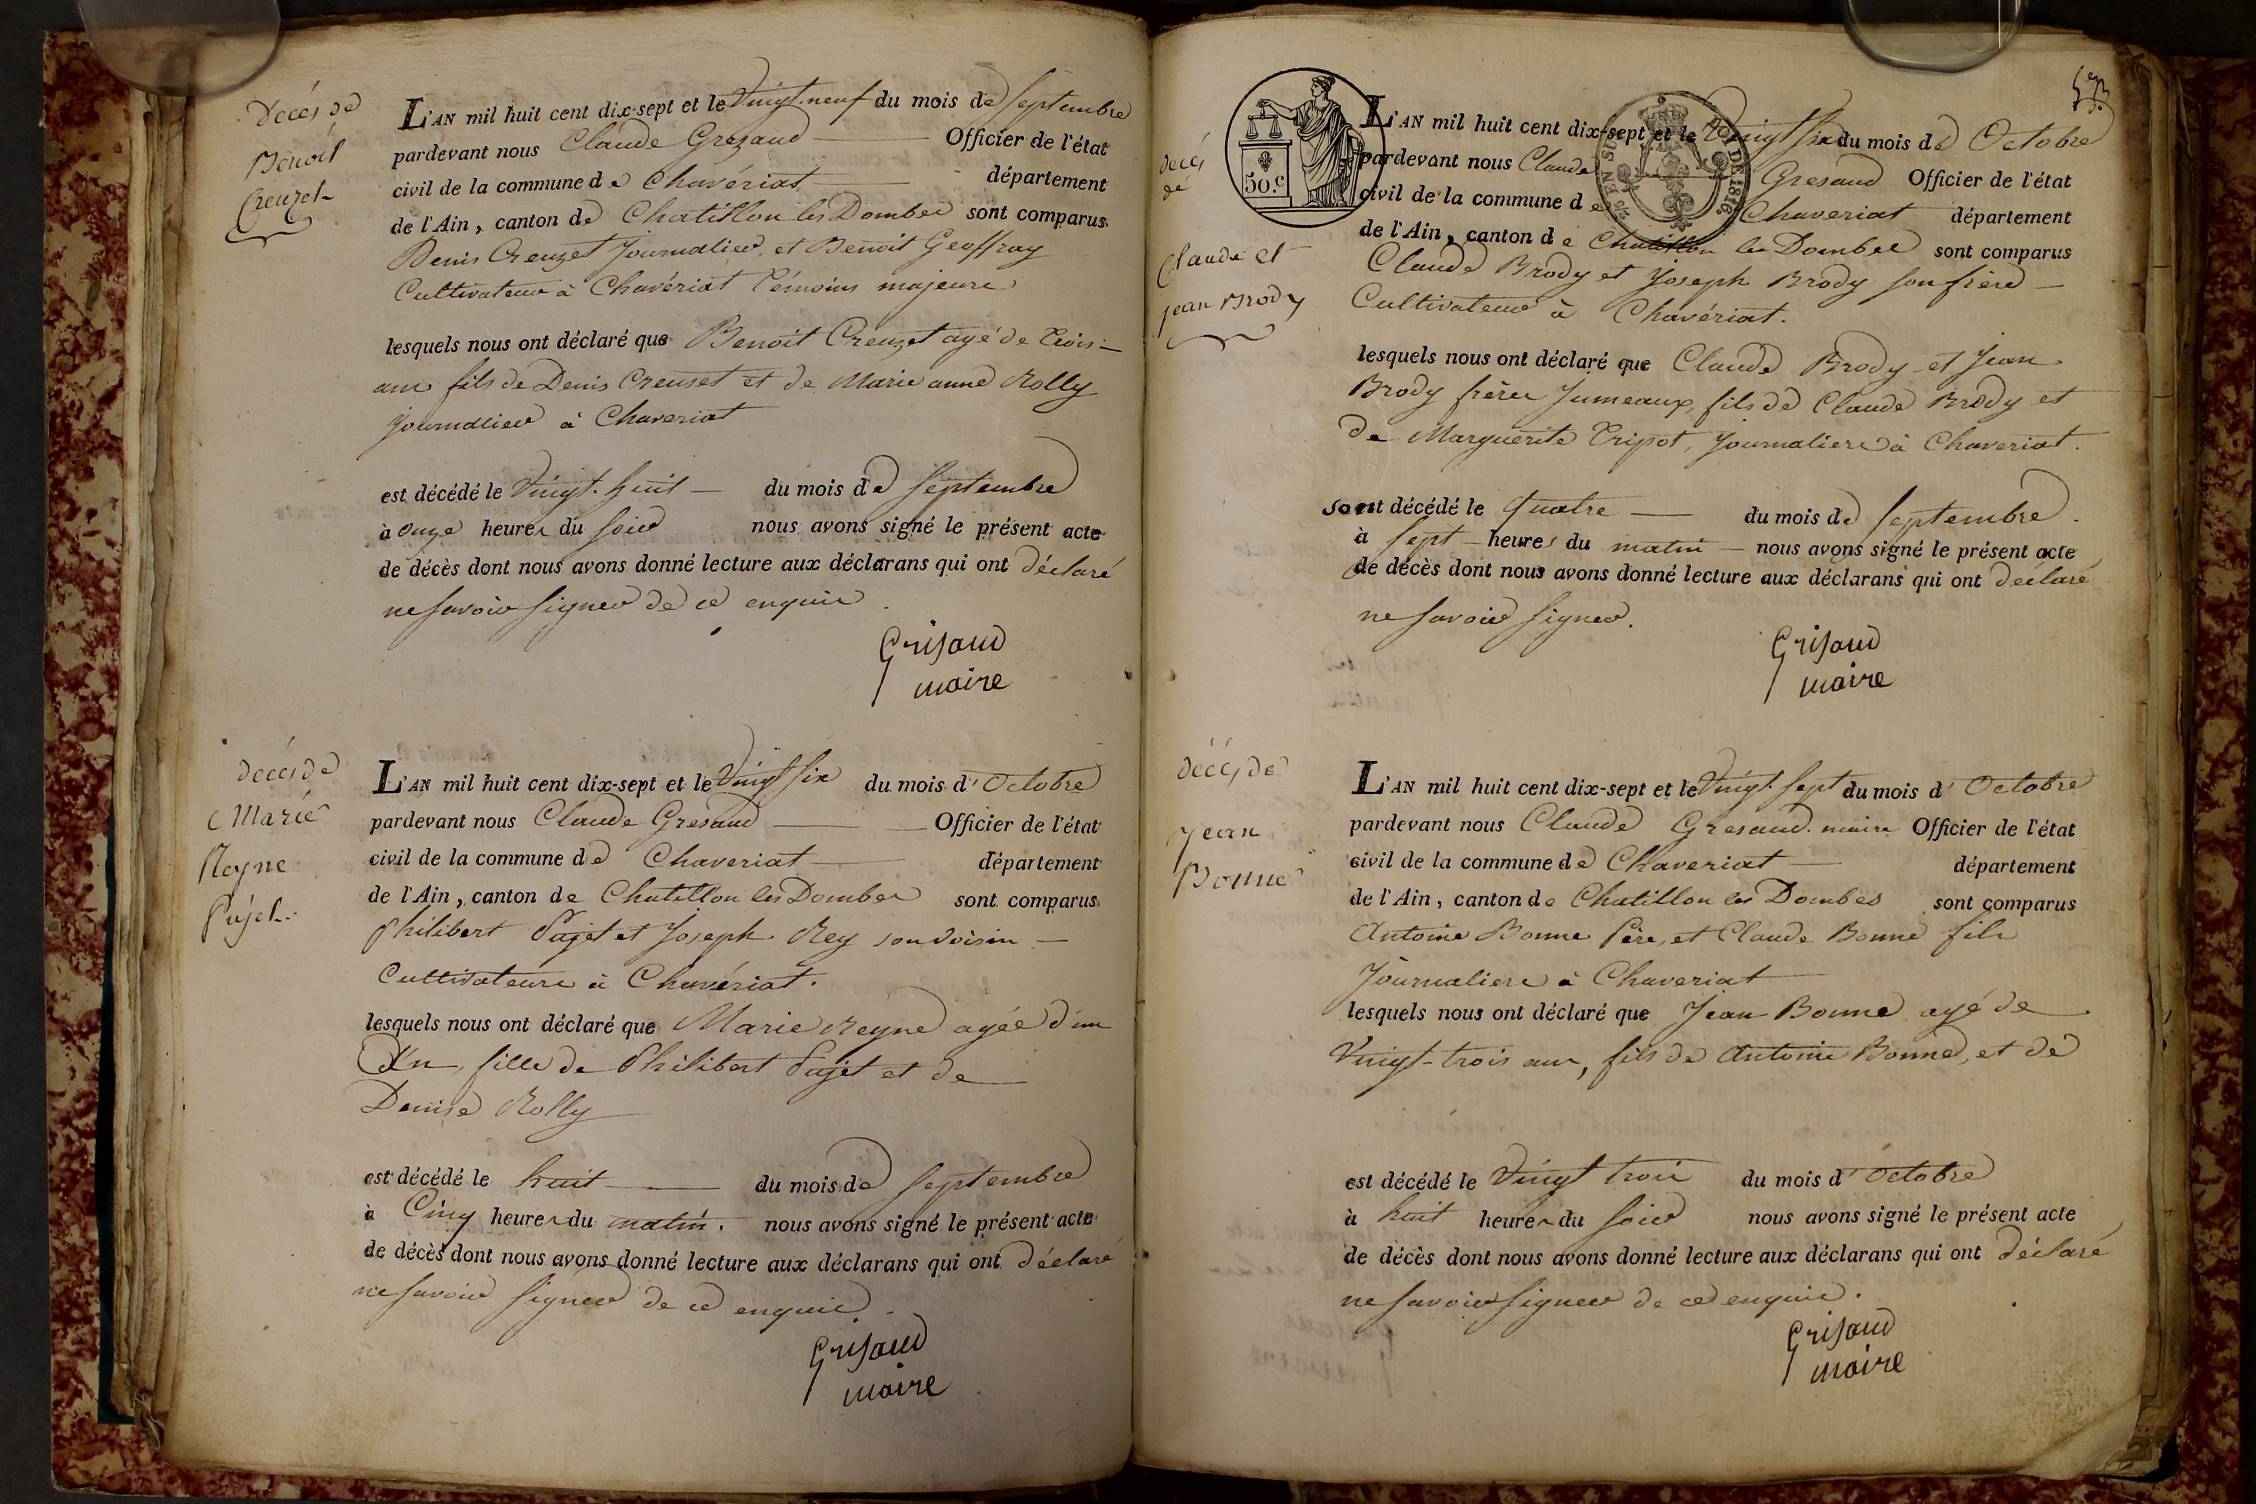 Décés de
Benoit
Creuzet
L'AN mil huit cent dix-sept et le Vingt-neuf du mois de Septembre
pardevant nous Claude Grezaud Officier de l'état
civil de la commune de Chavériat département
de l'Ain, canton de Chatillon les Dombes sont comparus
Denis Creuzet Journalier, et Benoit Geoffray
Cultivateur à Chavériat Témoins majeurs
lesquels nous ont déclaré que Benoit Creuzet agé de Trois
ans fils de Denis Creuset et de Marie anne Rolly
Journalier à Chaveriat
est décédé le Vingt-huit du mois de Septembre
à onze heures du soir nous avons signé le présent acte
de décès dont nous avons donné lecture aux déclarans qui ont déclaré
ne savoir signer de ce enquis
Grisaud
maire
Décés de
Marie
Reyne
Pujet
L'AN mil huit cent dix-sept et le Vingt Six du mois d'Octobre
pardevant nous Claude Gresaud Officier de l'état
civil de la commune de Chaveriat département
de l'Ain, canton de Chatillon les Dombes sont comparus
Philibert Pujet et Joseph Rey son voisin
Cultivateurs à Chavériat.
lesquels nous ont déclaré que Marie Reyne agée d'un
An, fille de Philibert Pujet et de
Denise Rolly
est décédé le huit du mois de Septembre
à Cinq heures du matin. nous avons signé le présent acte
de décès dont nous avons donné lecture aux déclarans qui ont déclaré
ne savoir signer de ce enquis.
Grisaud
maire
53
50.c
EN SUS
LOI DE 1816
décés
de
Claude et
jean Brody
L'AN mil huit cent dix-sept et le Vingt Six du mois de Octobre
pardevant nous Claude Gresaud Officier de l'état
civil de la commune de Chaveriat département
de l'Ain, canton de Chatillon les Dombes sont comparus
Claude Brody et Joseph Brody son frère
Cultivateurs à Chavériat.
lesquels nous ont déclaré que Claude Brody et Jean
Brody frères Jumeaux, fils de Claude Brody et
de Marguerite Tripot, Journaliers à Chaveriat.
sont décédé le quatre du mois de Septembre.
à Sept heures du matin nous avons signé le présent acte
de décès dont nous avons donné lecture aux déclarans qui ont déclaré
ne savoir signer.
Grisaud
maire
Décés de
Jean
Bonne
L'AN mil huit cent dix-sept et le Vingt-Sept du mois d'Octobre
pardevant nous Claude Gresaud maire Officier de l'état
civil de la commune de Chaveriat département
de l'Ain, canton de Chatillon les Dombes sont comparus
Antoine Bonne Père, et Claude Bonne fils
Journaliers à Chaveriat
lesquels nous ont déclaré que Jean Bonne agé de
Vingt-trois ans, fils de Antoine Bonne, et de
est décédé le Vingt trois du mois d'Octobre
à huit heures du soir nous avons signé le présent acte
de décès dont nous avons donné lecture aux déclarans qui ont déclaré
ne savoir signer de ce enquis.
Grisaud
maire